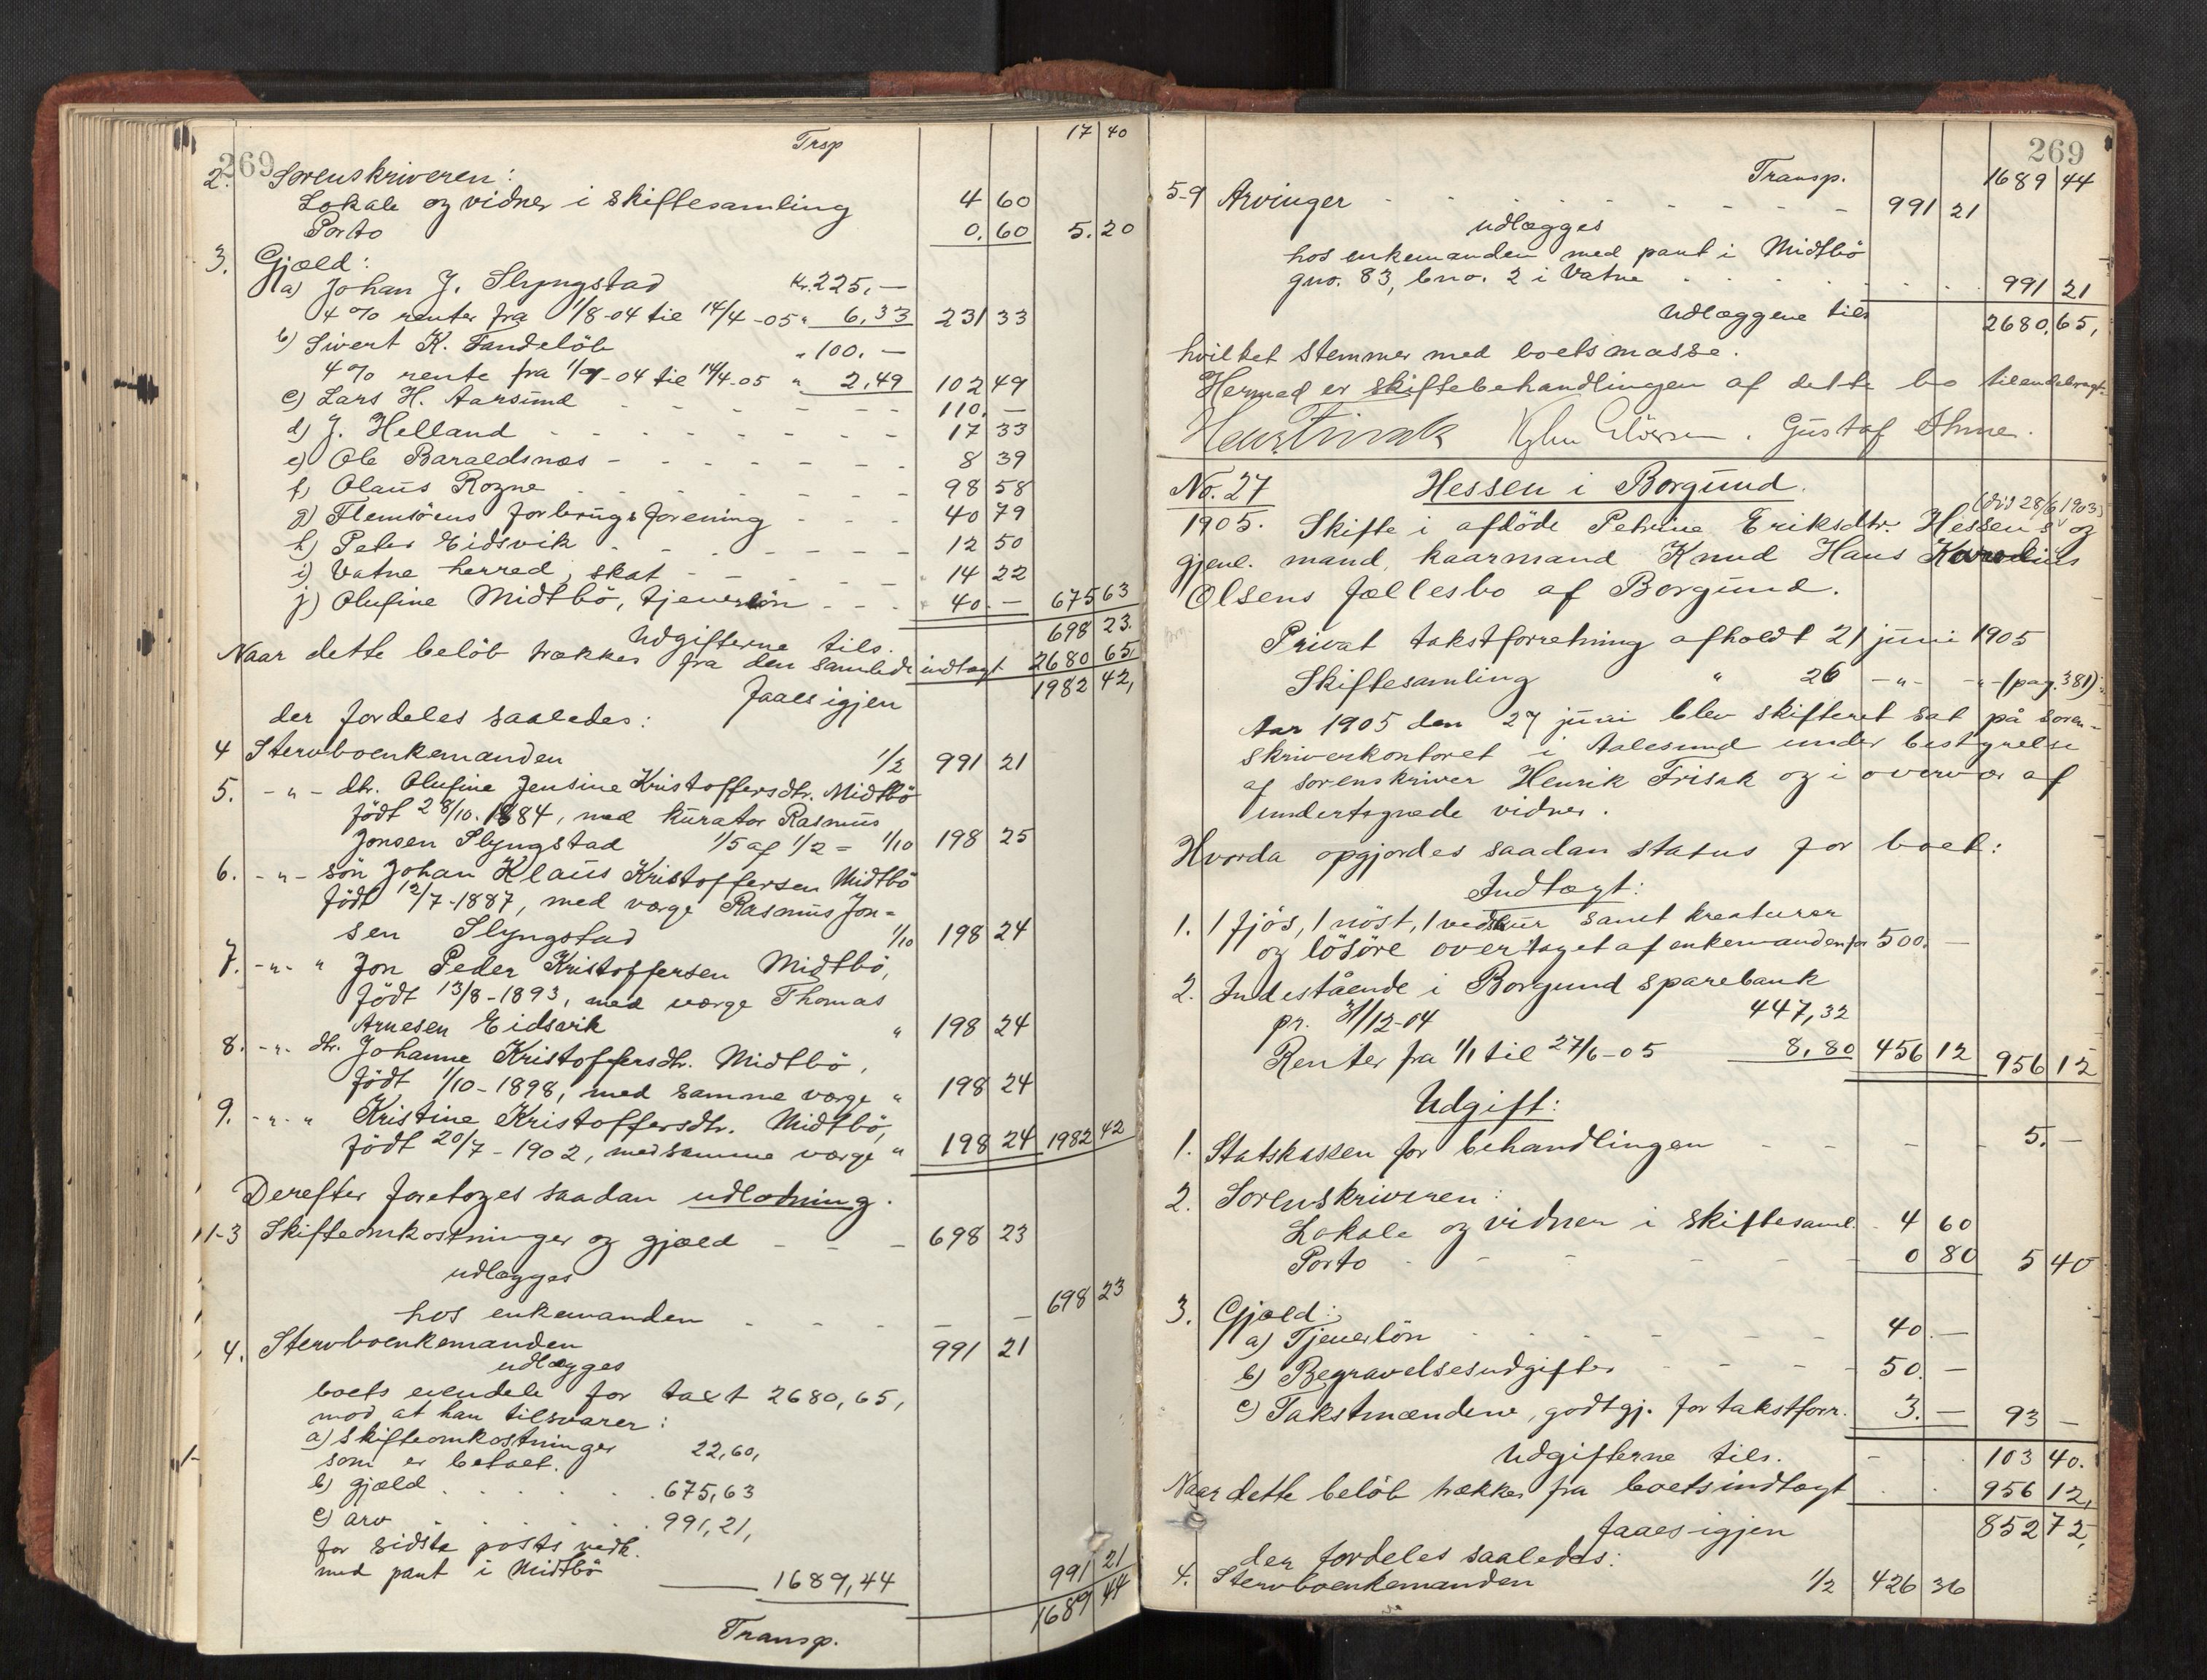 269
Trsp 17 40
2. Sorenskriveren:
Lokale og vidner i skiftesamling 4 60
Porto 0.60 5.20
3. Gjæld:
a) Johan J. Slyngstad kr. 225.—
4 % renter fra 1/8-04 til 14/4-05 " 6,33 231 33
b) Sivert K. Tandeløb " 100.—
4 % rente fra 1/9-04 til 14/4-05 " 2,49 102 49
c) Lars H. Aarsund - - - - - - 110.—
d) J. Helland - - - - - - 17 33
e) Ole Baraldsnæs - - - - - - 8 39
f) Olaus Rogne - - - - - - 98 58
g) Flemsöens forbrugsforening - - - 40 79
h) Peter Eidsvik - - - - - - 12 50
i) Vatne herred, skat - - - - - 14 22
j) Olufine Midtbö, tjenerlön - - - 40.— 675 63
Udgifterne tils. 698 23.
Naar dette belöb trækkes fra den samlede indtægt 2680 65.
faaes igjen 1982 42,
der fordeles saaledes:
4 Stervboenkemanden 1/2 991 21
5. - " - dtr. Olufine Jensine Kristoffersdtr. Midtbö
födt 28/10. 1884, med kurator Rasmus
Jonsen Slyngstad 1/5 af 1/2 = 1/10 198 25
6. - " - sön Johan Klaus Kristoffersen Midtbö
födt 12/7-1887, med værge Rasmus Jon=
sen Slyngstad 1/10 198 24
7. - " - " Jon Peder Kristoffersen Midtbö,
födt 13/8-1893, med værge Thomas
Arnesen Eidsvik " 198 24
8. - " - dtr. Johanne Kristoffersdtr. Midtbö,
födt 1/10-1898, med samme værge " 198 24
9. - " - " Kristine Kristoffersdtr. Midtbö,
födt 20/7-1902, med samme værge " 198 24 1982 42
Derefter foretoges saadan udlodning.
1-3 Skifteomkostninger og gjæld - - - 698 23
udlægges
hos enkemanden - - - - - 698 23
4. Stervboenkemanden 991 21
udlægges
boets eiendele for taxt 2680,65,
mod at han tilsvarer:
a) skifteomkostninger 22,60,
som er betalt.
b) gjæld . . . . . 675,63
c) arv . . . . . 991,21,
for sidste posts vedk.
med pant i Midtbö 991 21
1689,44 1689 44
Transp.
269
Transp. 1689 44
5-9 Arvinger - - - - - - - 991 21
udlægges
hos enkemanden med pant i Midtbö
gno. 83, bno. 2 i Vatne . . . . . 991 21
Udlæggene tils 2680.65,
hvilket stemmer med boets masse.
Hermed er skiftebehandlingen af dette bo tilendebragt.
Henr. Frisak Gustaf Ihme.
No. 27 Hessen i Borgund.
(död 28/6 1903)
1905. Skifte i afdöde Petrine Eriksdtr. Hessens og
gjenl. mand, kaarmand Knud Hans Karolius
Olsens fællesbo af Borgund.
Privat takstforretning afholdt 21 juni 1905
Skiftesamling " 26 - " - - " - (pag. 381):
Aar 1905 den 27 juni blev skifteret sat på soren-
skriverkontoret i Aalesund under bestyrelse
af sorenskriver Henrik Frisak og i overvær af
undertegnede vidner.
Hvorda opgjordes saadan status for boet:
Indtægt:
1. 1 fjös, 1 nöst, 1 vedskur samt kreaturer
og lösöre overtaget af enkemanden for 500.—
2. Indestående i Borgund sparebank
pr. 31/12-04 447,32
Renter fra 1/1 til 27/6-05 8,80 456 12 956 12
Udgift:
1. Statskassen for behandlingen - - - - 5.—
2. Sorenskriveren:
Lokale og vidner i skiftesaml. - 4 60
Porto - - - - - 0 80 5 40
3. Gjæld:
a) Tjenerlön - - - - - 40.—
b) Begravelsesudgifter - - - - 50.—
c) Takstmændene, godtgj. for takstforr. 3.— 93 —
Udgifterne tils. - . . 103 40.
Naar dette belöb trækkes fra boets indtægt . . 956 12,
faaes igjen 852 72,
der fordeles saaledes:
4. Stervboenkemanden 1/2 426 36